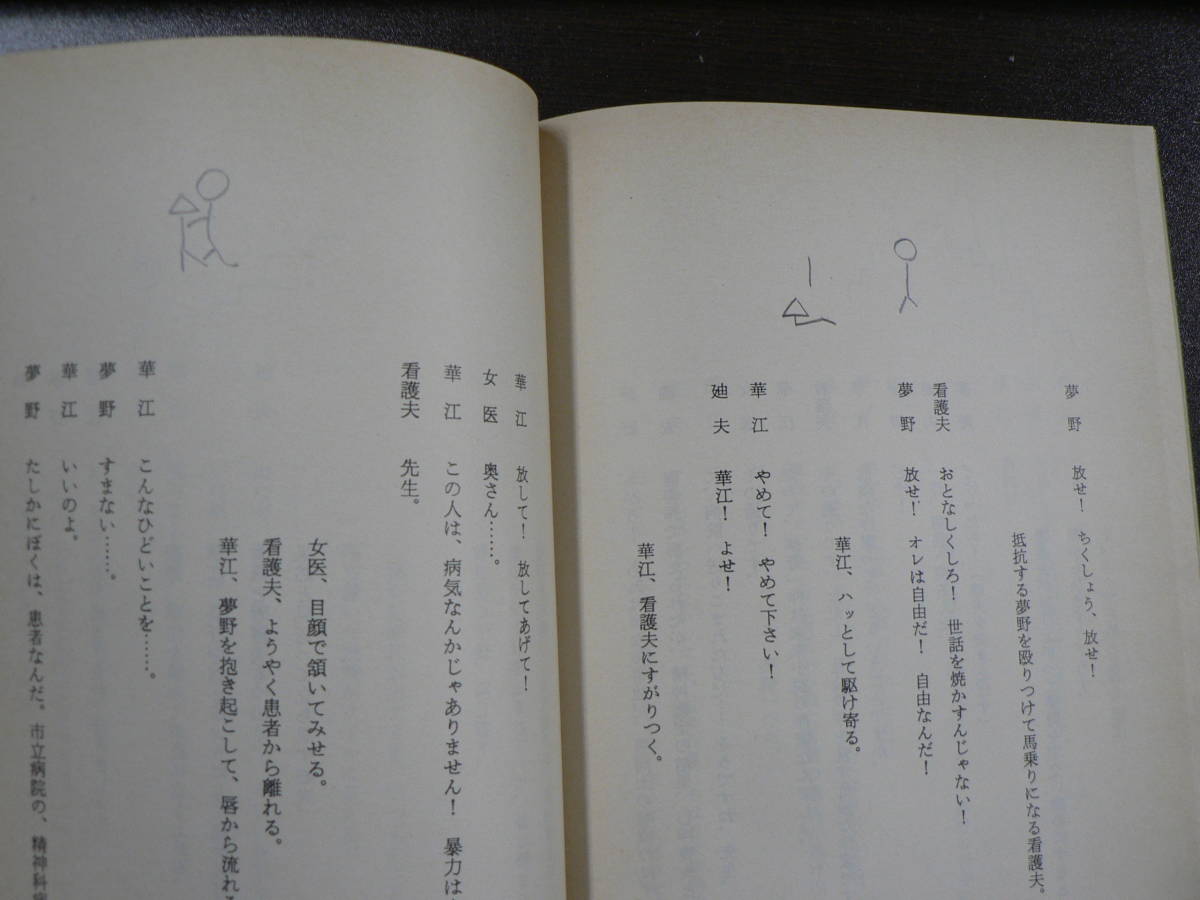 夢　野　放せ！　ちくしょう、放せ！
抵抗する夢野を殴りつけて馬乗りになる看護夫。
看護夫　おとなしくしろ！　世話を焼かすんじゃない！
夢　野　放せ！　オレは自由だ！　自由なんだ！
華江、ハッとして駆け寄る。
華　江　やめて！　やめて下さい！
廸　夫　華江！　よせ！
華江、看護夫にすがりつく。
華　江　放して！　放してあげて！
女　医　奥さん……。
華　江　この人は、病気なんかじゃありません！　暴力は
看護夫　先生。
女医、目顔で頷いてみせる。
看護夫、ようやく患者から離れる。
華江、夢野を抱き起こして、唇から流れる
華　江　こんなひどいことを……。
夢　野　すまない……。
華　江　いいのよ。
夢　野　たしかにぼくは、患者なんだ。市立病院の、精神科